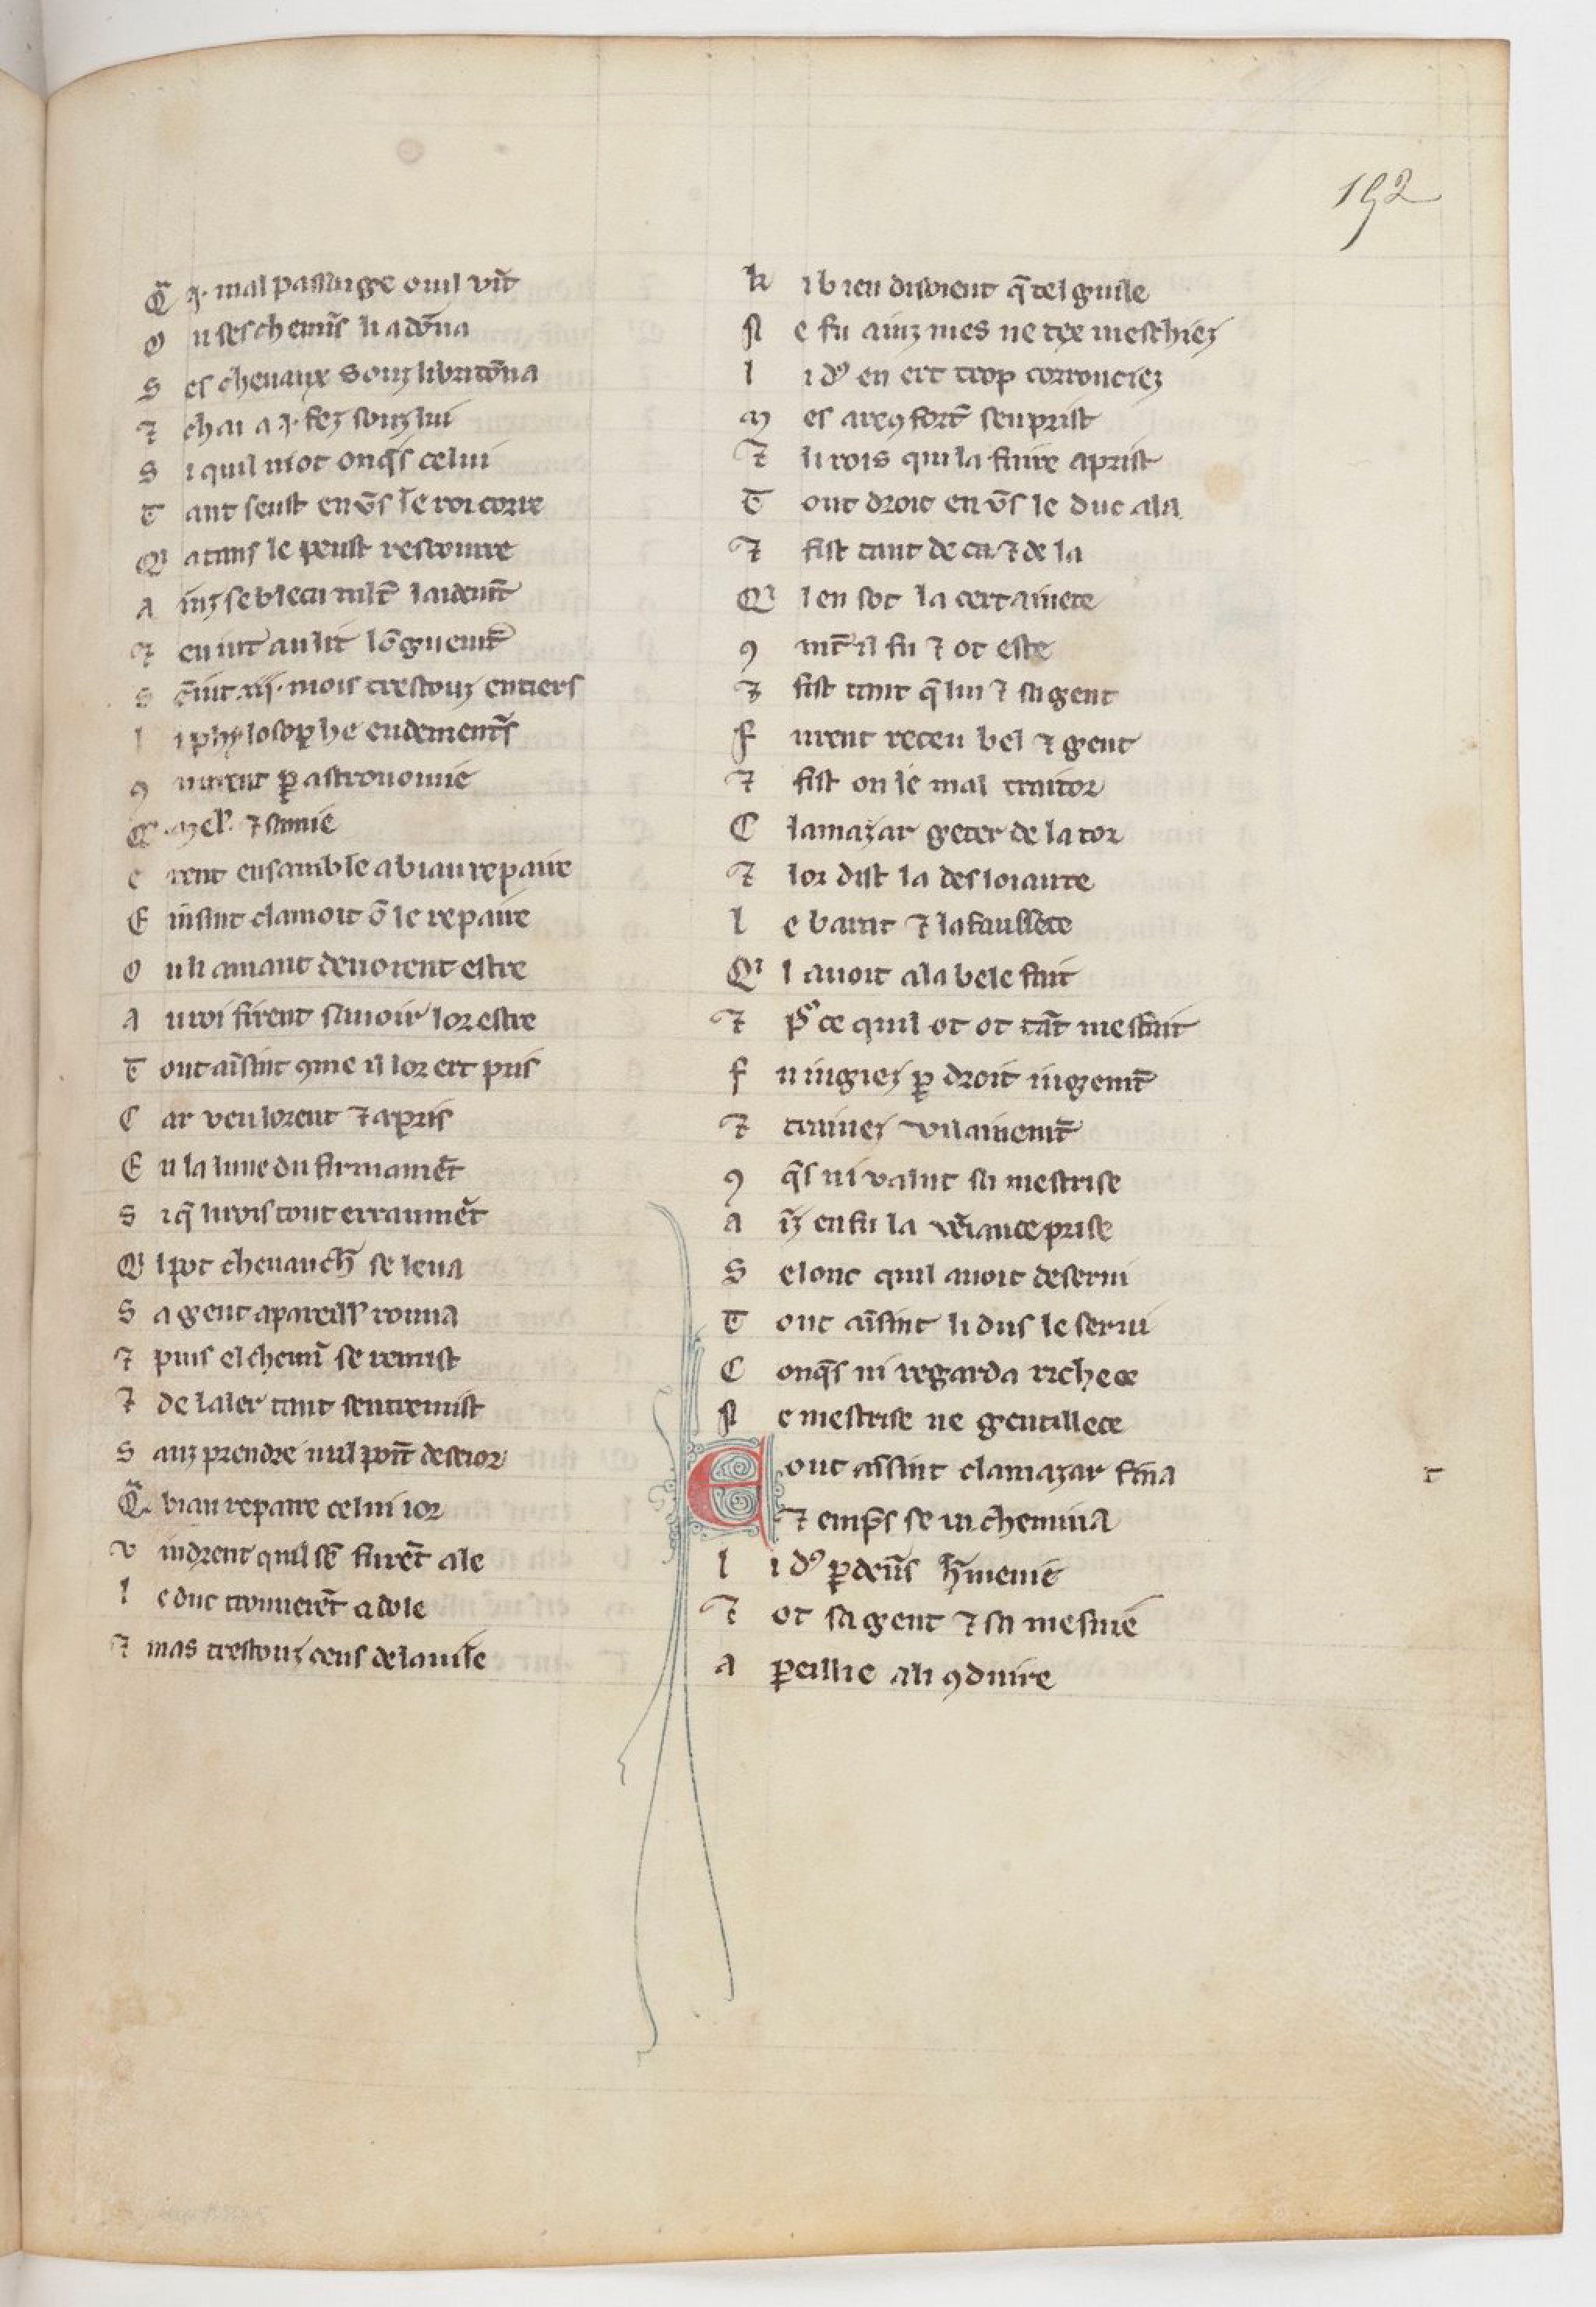 192
Q̃ .j. mal passage ou il vīt
O u ses chemīs li a dōna
S es cheuaux souz li bra tōna
⁊ chai a .j. fez souz lui
S i quil not onq̄s celui
T ant seust en v̄s le roi corre
Q a tans le peust rescourre
A inz se bleca mlt̄ laidemt̄
⁊ en iut au lit lōguemt̄
S
l i phylosophe endementr̄s
ꝯ nurent ꝑ astronomie
Q̃ .mel'. ⁊ samie
E rent ensamble a biau repaire
E insint clamoit ō le repaire
O u li amant deuoient estre
A u roi firent sauoir lor estre
T out aīsint ꝯme il lor ert pris
C ar veu lorent ⁊ apris
E n la lune du firmamēt
S i q̄ li rois tout erraumēt
Q l pot cheuauch̄ se leua
S a gent apareill' rouua
⁊ puis el chemī se remist
⁊ de laler tant sentremist
S anz prendre nul poīt de seior
Q̃ biau repaire celui ior
V indrent quil sē furēt ale
L e duc trouuerēt adole
⁊ mas trestouz ceus de la uile
K i bien disoient q̄ tel guile
N e fu ainz mes ne tex meschiez
L i d9 en ert trop corrouciez
M es areꝯfort̄ sen prist
⁊ li rois qui lafaire aprist
T out droit en v̄s le duc ala
⁊ fist tant de ca ⁊ de la
Q l en sot la certainete
ꝯ mt̄ il fu ⁊ ot este
⁊ fist tant q̄ lui ⁊ sa gent
F urent receu bel ⁊ gent
⁊ fist on le mal traitor
C lamazar geter de la tor
⁊ lor dist la desloiaute
L e barat ⁊ la faussete
Q l auoit a la bele fait
⁊ p̄ ce quil ot ot tāt mesfait
F u iugiez ꝑ droit iugemt̄
⁊ trainez vilainemt̄
ꝯ q̄s ni valut sa mestrise
A īz en fu la v̄iance prise
S elonc quil auoit deserui
T out aīsint li dus le serui
C onq̄s ni regarda richece
N e mestrise ne gentillece
E out aīsint clamazar fina
⁊ emp̄s se racchemina
L i d9 ꝑ deu̅s h̄menie
⁊ ot sa gent ⁊ sa mesnie
A ꝑeillie a li ꝯduire
t